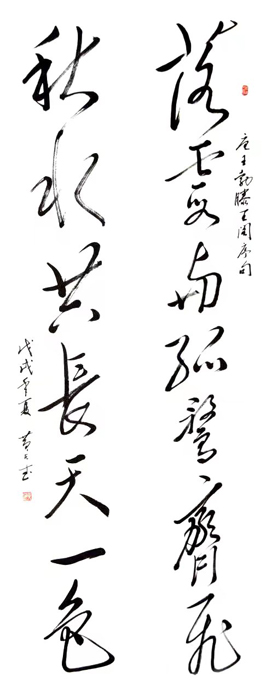 唐王勃滕王阁序句
落霞与孤鶩齊飛
秋水共長天一色
戊戌孟夏